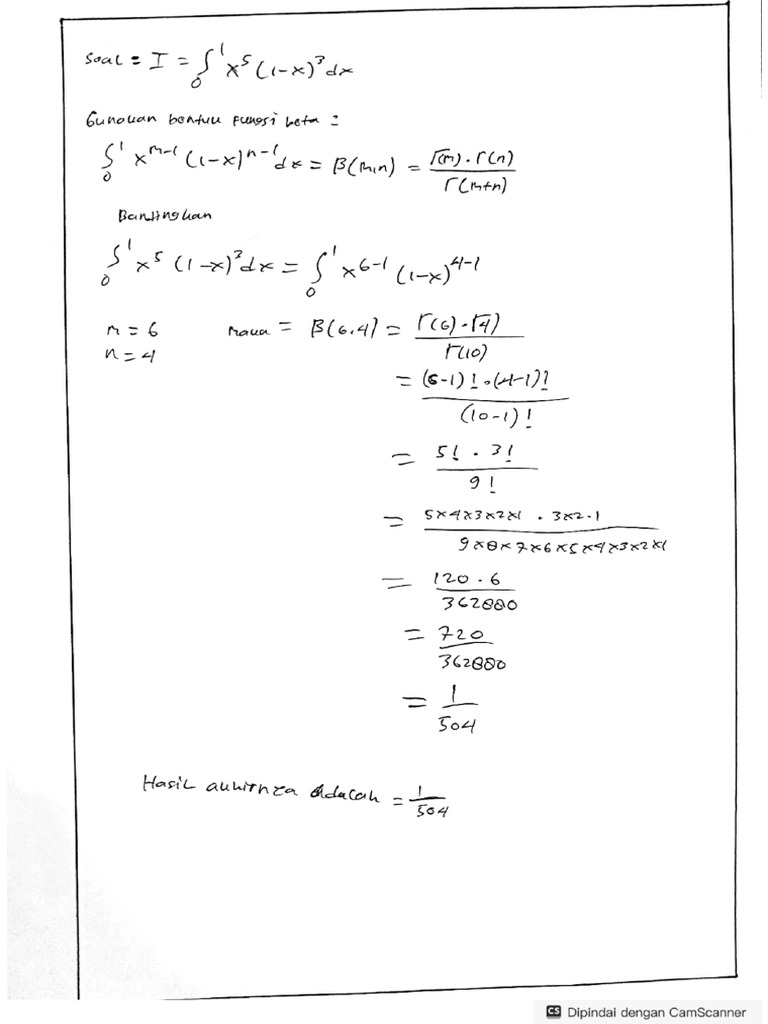 Soal = I = ∫₀¹ x⁵ (1-x)³ dx
Gunakan bentuk fungsi beta =
∫₀¹ x^(m-1) (1-x)^(n-1) dx = β(m,n) = Γ(m) . Γ(n) / Γ(m+n)
Bandingkan
∫₀¹ x⁵ (1-x)³ dx = ∫₀¹ x^(6-1) (1-x)^(4-1)
m = 6 maka = β(6.4) = Γ(6) . Γ4) / Γ(10)
n = 4
= (6-1)! . (4-1)! / (10-1)!
= 5! . 3! / 9!
= 5×4×3×2×1 . 3×2.1 / 9×8×7×6×5×4×3×2×1
= 120 . 6 / 362880
= 720 / 362880
= 1 / 504
Hasil akhirnya adalah = 1 / 504
CS Dipindai dengan CamScanner